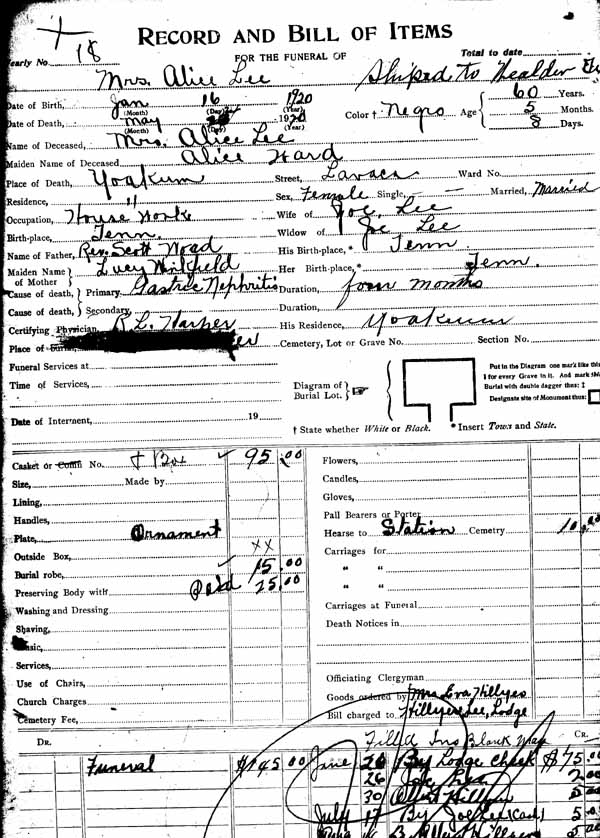 RECORD AND BILL OF ITEMS
Yearly No. 18
FOR THE FUNERAL OF
Total to date
Mrs. Alice Lee Shiped to Waelder
Date of Birth, Jan 16 1920
(Month) (Day) (Year)
Date of Death, May 1920
(Month) (Day) (Year)
Color † Negro Age 60 Years.
5 Months.
8 Days.
Name of Deceased, Mrs. Alice Lee
Maiden Name of Deceased, Alice Ward
Place of Death, Yoakum Street, Lavaca Ward No.
Residence, " Sex, Female Single, — Married, Married
Occupation, House Work Wife of Joe Lee
Birth-place, Tenn. Widow of Joe Lee
Name of Father, Rev. Scott His Birth-place, * Tenn.
Maiden Name of Mother Lucy Her Birth-place, * Tenn.
Cause of death, Primary, Gastric Nephritis Duration, four months
Cause of death, Secondary, Duration,
Certifying Physician, R L. Harper His Residence, Yoakum
Place of Cemetery, Lot or Grave No. Section No.
Funeral Services at
Time of Services,
Date of Interment, 19
Diagram of Burial Lot.
Put in the Diagram one mark like this
I for every Grave in it. And mark this
Burial with double dagger thus: ‡
Designate site of Monument thus:
† State whether White or Black. * Insert Town and State.
Casket or Coffin No. & Box 95.00
Size, Made by
Lining,
Handles,
Plate, Ornament
Outside Box, xx
Burial robe, 15.00
Preserving Body with 25.00
Washing and Dressing
Shaving,
Music,
Services,
Use of Chairs,
Church Charges
Cemetery Fee,
Flowers,
Candles,
Gloves,
Pall Bearers or Porter
Hearse to Station Cemetry 10.00
Carriages for
" "
" "
Carriages at Funeral
Death Notices in
Officiating Clergyman
Goods ordered by Mrs Eva Hillyer
Bill charged to Hillyer Lee, Lodge
Filled Ins Blank
DR. CR.
Funeral $145 00 June 26 By Lodge Check $75.00
26 Joe Lee
30
July 17 By Joe Lee (Cash) 5